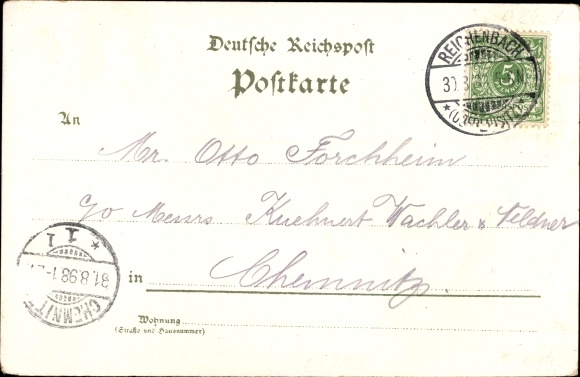 Deutsche Reichspost
Postkarte
REICHENBACH
30.8
5
An
Mr. Otto Forchheim
c/o Messrs Kuehnert Wachler & Veldner
* 1 1
31.8.98.1-
CHEMNITZ
in Chemnitz.
Wohnung
(Straße und Hausnummer)